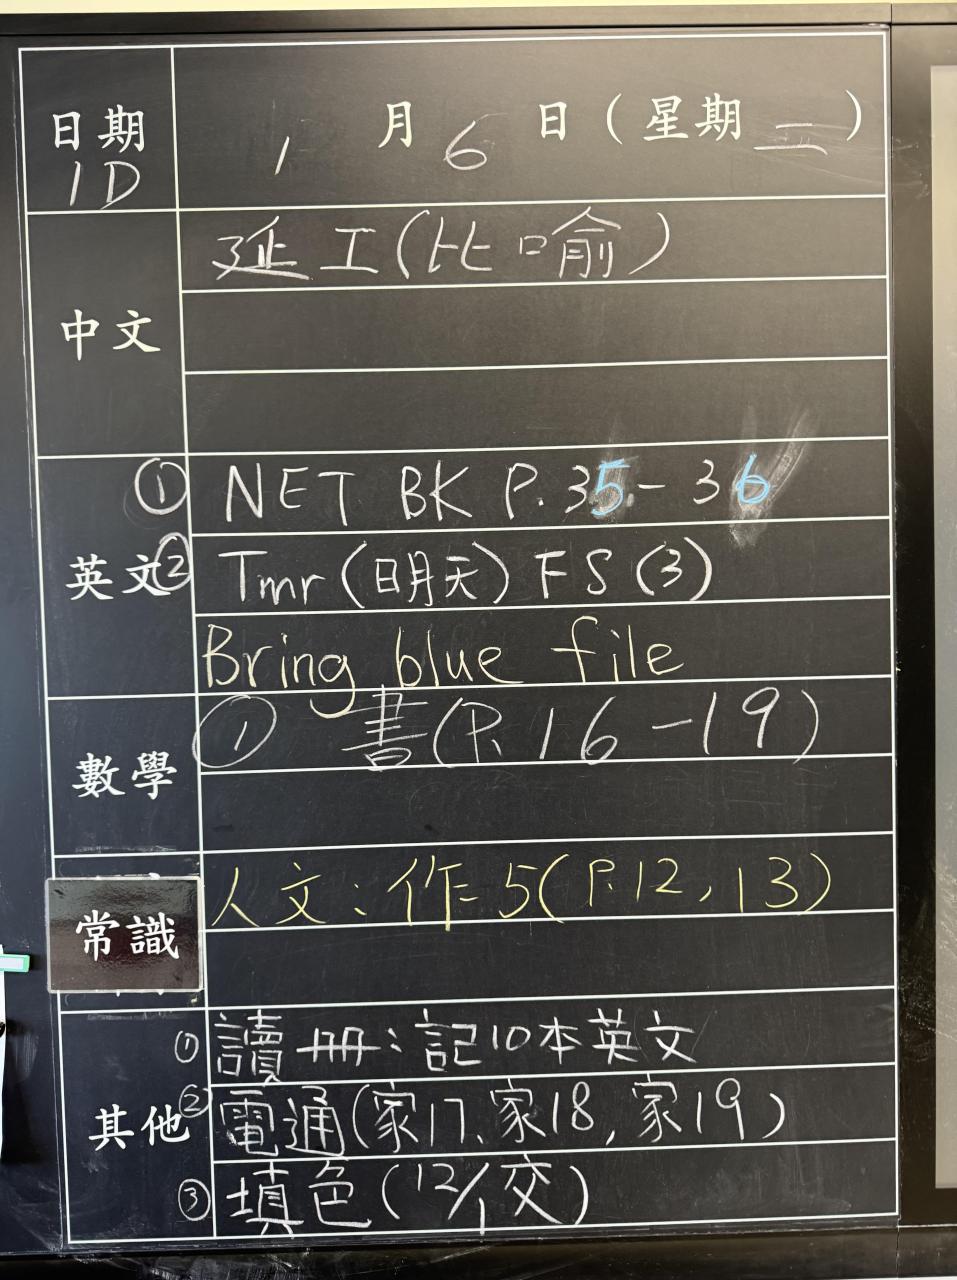 日期 1月6日(星期二)
1D
中文
延工(比喻)
英文
① NET BK P.35-36
② Tmr(明天)FS(3)
Bring blue file
數學
① 書(P.16-19)
常識
人文:作5(P.12,13)
其他
① 讀冊:記10本英文
② 電通(家17、家18,家19)
③ 填色(12/1交)